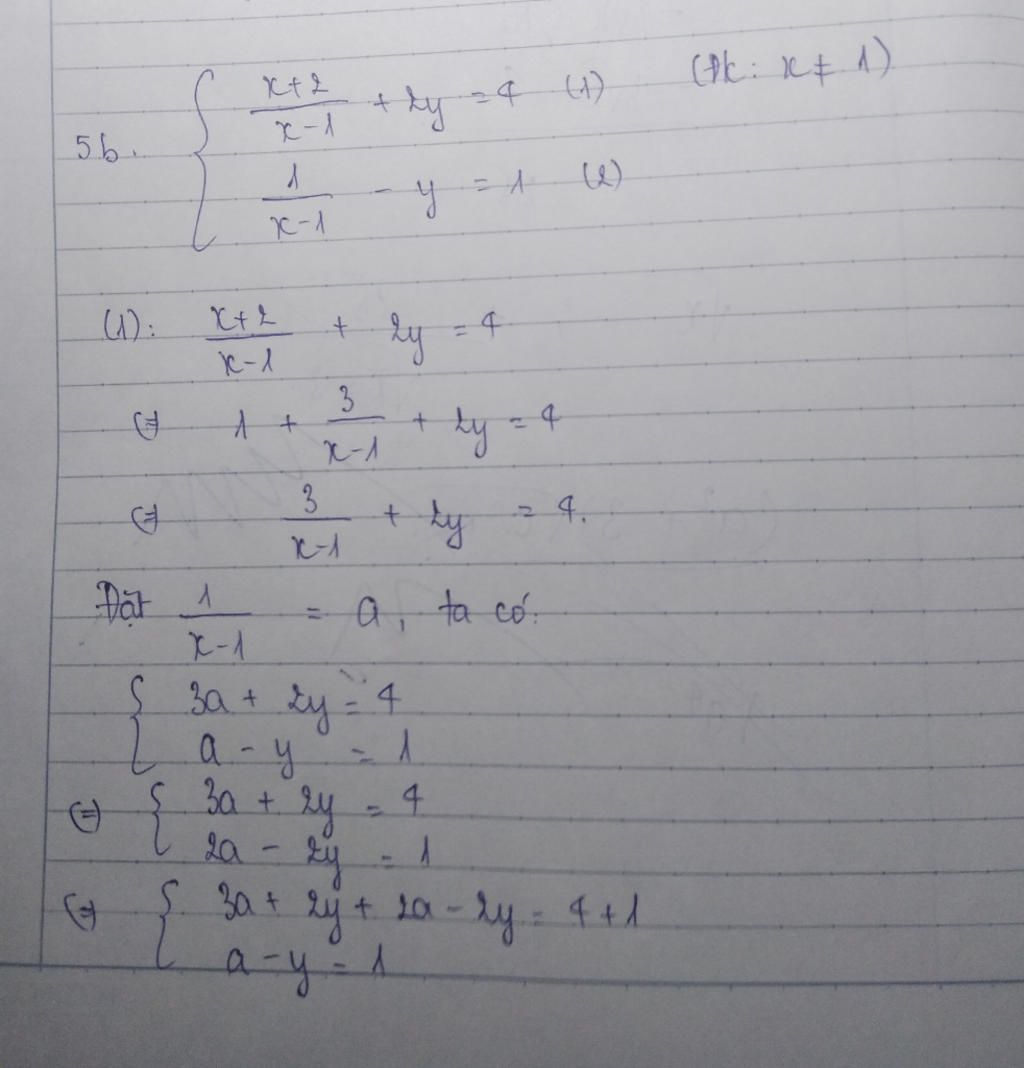 5b. { (x+2)/(x-1) + 2y = 4 (1) (Đk: x ≠ 1)
1/(x-1) - y = 1 (2)
(1): (x+2)/(x-1) + 2y = 4
⇔ 1 + 3/(x-1) + 2y = 4
⇔ 3/(x-1) + 2y = 4.
Đặt 1/(x-1) = a, ta có:
{ 3a + 2y = 4
a - y = 1
⇔ { 3a + 2y = 4
2a - 2y = 1
⇔ { 3a + 2y + 2a - 2y = 4 + 1
a - y = 1